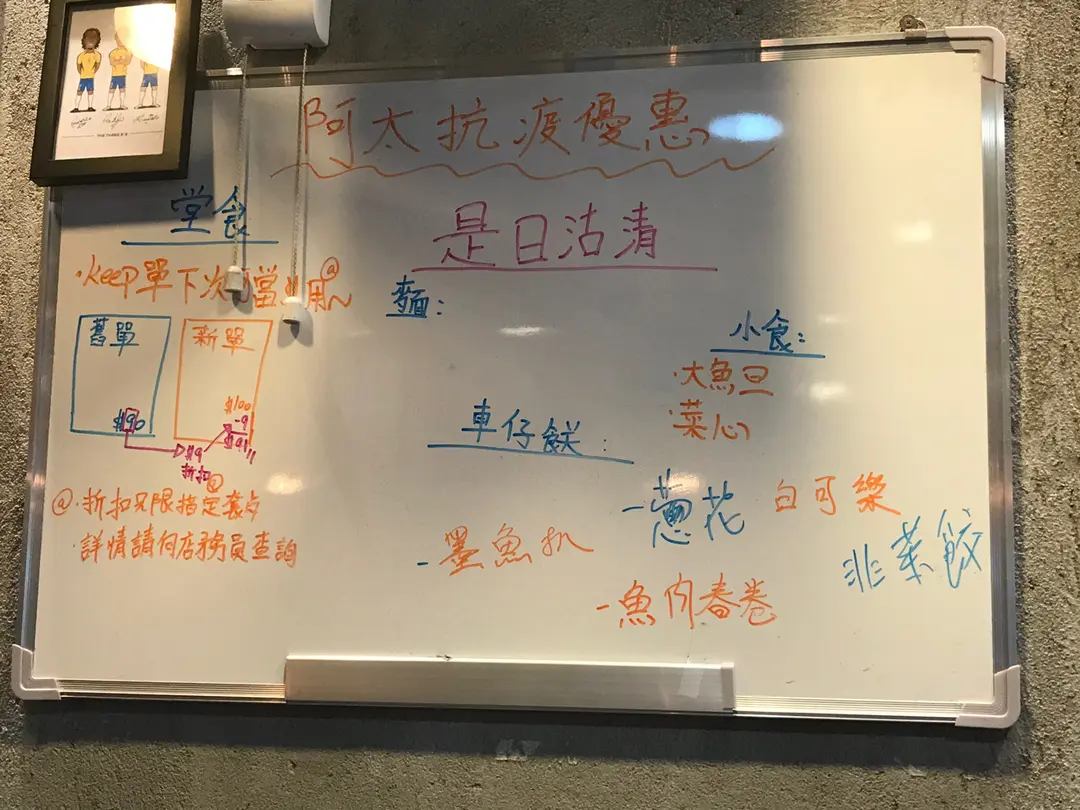 阿太抗疫優惠
堂食
·keep單下次可當 用~@
舊單
$90
新單
$100
-9
$91
$9
折扣@
@·折扣只限指定套餐
·詳情請向店務員查詢
是日沽清
麵:
小食:
·大魚旦
·菜心
車仔餸:
-蔥花
白可樂
-墨魚扒
-魚肉春卷
韭菜餃